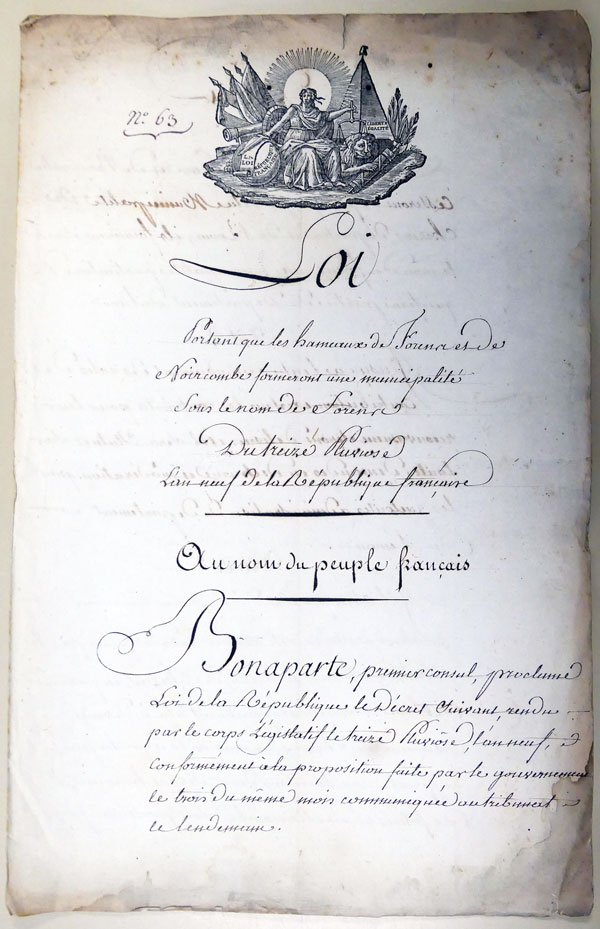 N.º 63
LA LOI
RÉPUBLIQUE FRANÇAISE
LIBERTÉ ÉGALITÉ
Loi
Portant que les hameaux de Forens et de
Noircombe formeront une municipalité
Sous le nom de Forens
Du treize Pluviose
L'an neuf de la République française
Au nom du peuple français
Bonaparte, premier consul, proclame
Loi de la République le Décret Suivant, rendu
par le corps Législatif le treize Pluviôse, l'an neuf,
conformément à la proposition faite par le gouvernement
le trois du même mois communiquée au tribunat
le lendemain.